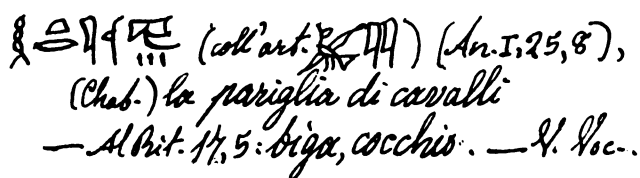 (coll'art. ) (An. I, 25, 8),
(Chab.) la pariglia di cavalli
— Al Rit. 17, 5: biga, cocchio. — V. Voc.